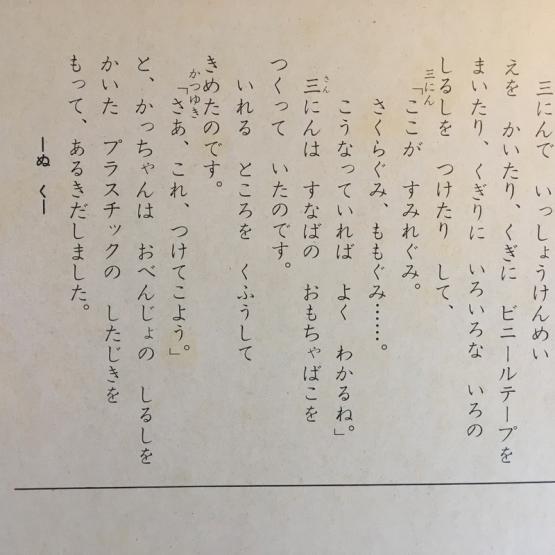 三にんで　いっしょうけんめい
えを　かいたり、くぎに　ビニールテープを
まいたり、くぎりに　いろいろな　いろの
しるしを　つけたり　して、
三にん
「ここが　すみれぐみ。
さくらぐみ、ももぐみ……。
こうなっていれば　よく　わかるね。」
さん
三にんは　すなばの　おもちゃばこを
つくって　いたのです。
いれる　ところを　くふうして
きめたのです。
かつゆき
「さあ、これ、つけてこよう。」
と、かっちゃんは　おべんじょの　しるしを
かいた　プラスチックの　したじきを
もって、あるきだしました。
―ぬ　く―